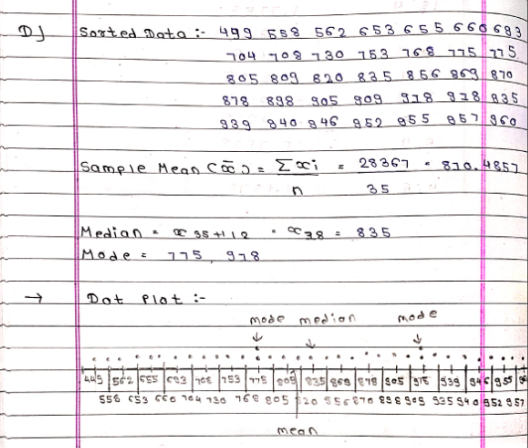 D] Sorted Data :- 499 558 562 653 655 660 683
704 708 730 753 768 775 775
805 809 820 835 856 869 870
878 898 905 909 918 928 935
939 940 946 952 955 957 960
Sample Mean (x̄) = Σxi = 28367 = 810.4857
n 35
Median = x 35+1/2 = x 18 = 835
Mode = 775, 978
→ Dot Plot :-
mode median mode
562 655 683 708 753 775 809 835 869 878 905 939 946 955
558 653 660 704 730 768 805 820 856 870 898 909 935 940 952 957
mean